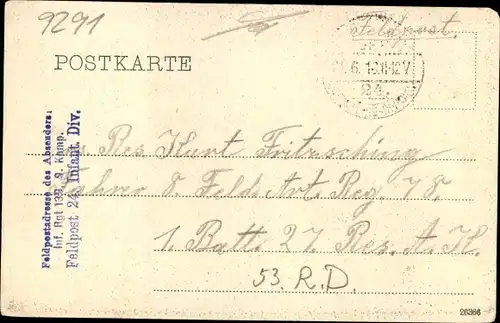 9291
Feldpost
POSTKARTE
24.
Feldpostadresse des Absenders:
Inf. Rgt 139, 9. Komp.
Feldpost 24. Infant. Div.
Res. Kurt Fritzsching
8. Feld. Art. Reg. 78.
1. Batt. 27. Res. A. K.
53. R. D.
26366